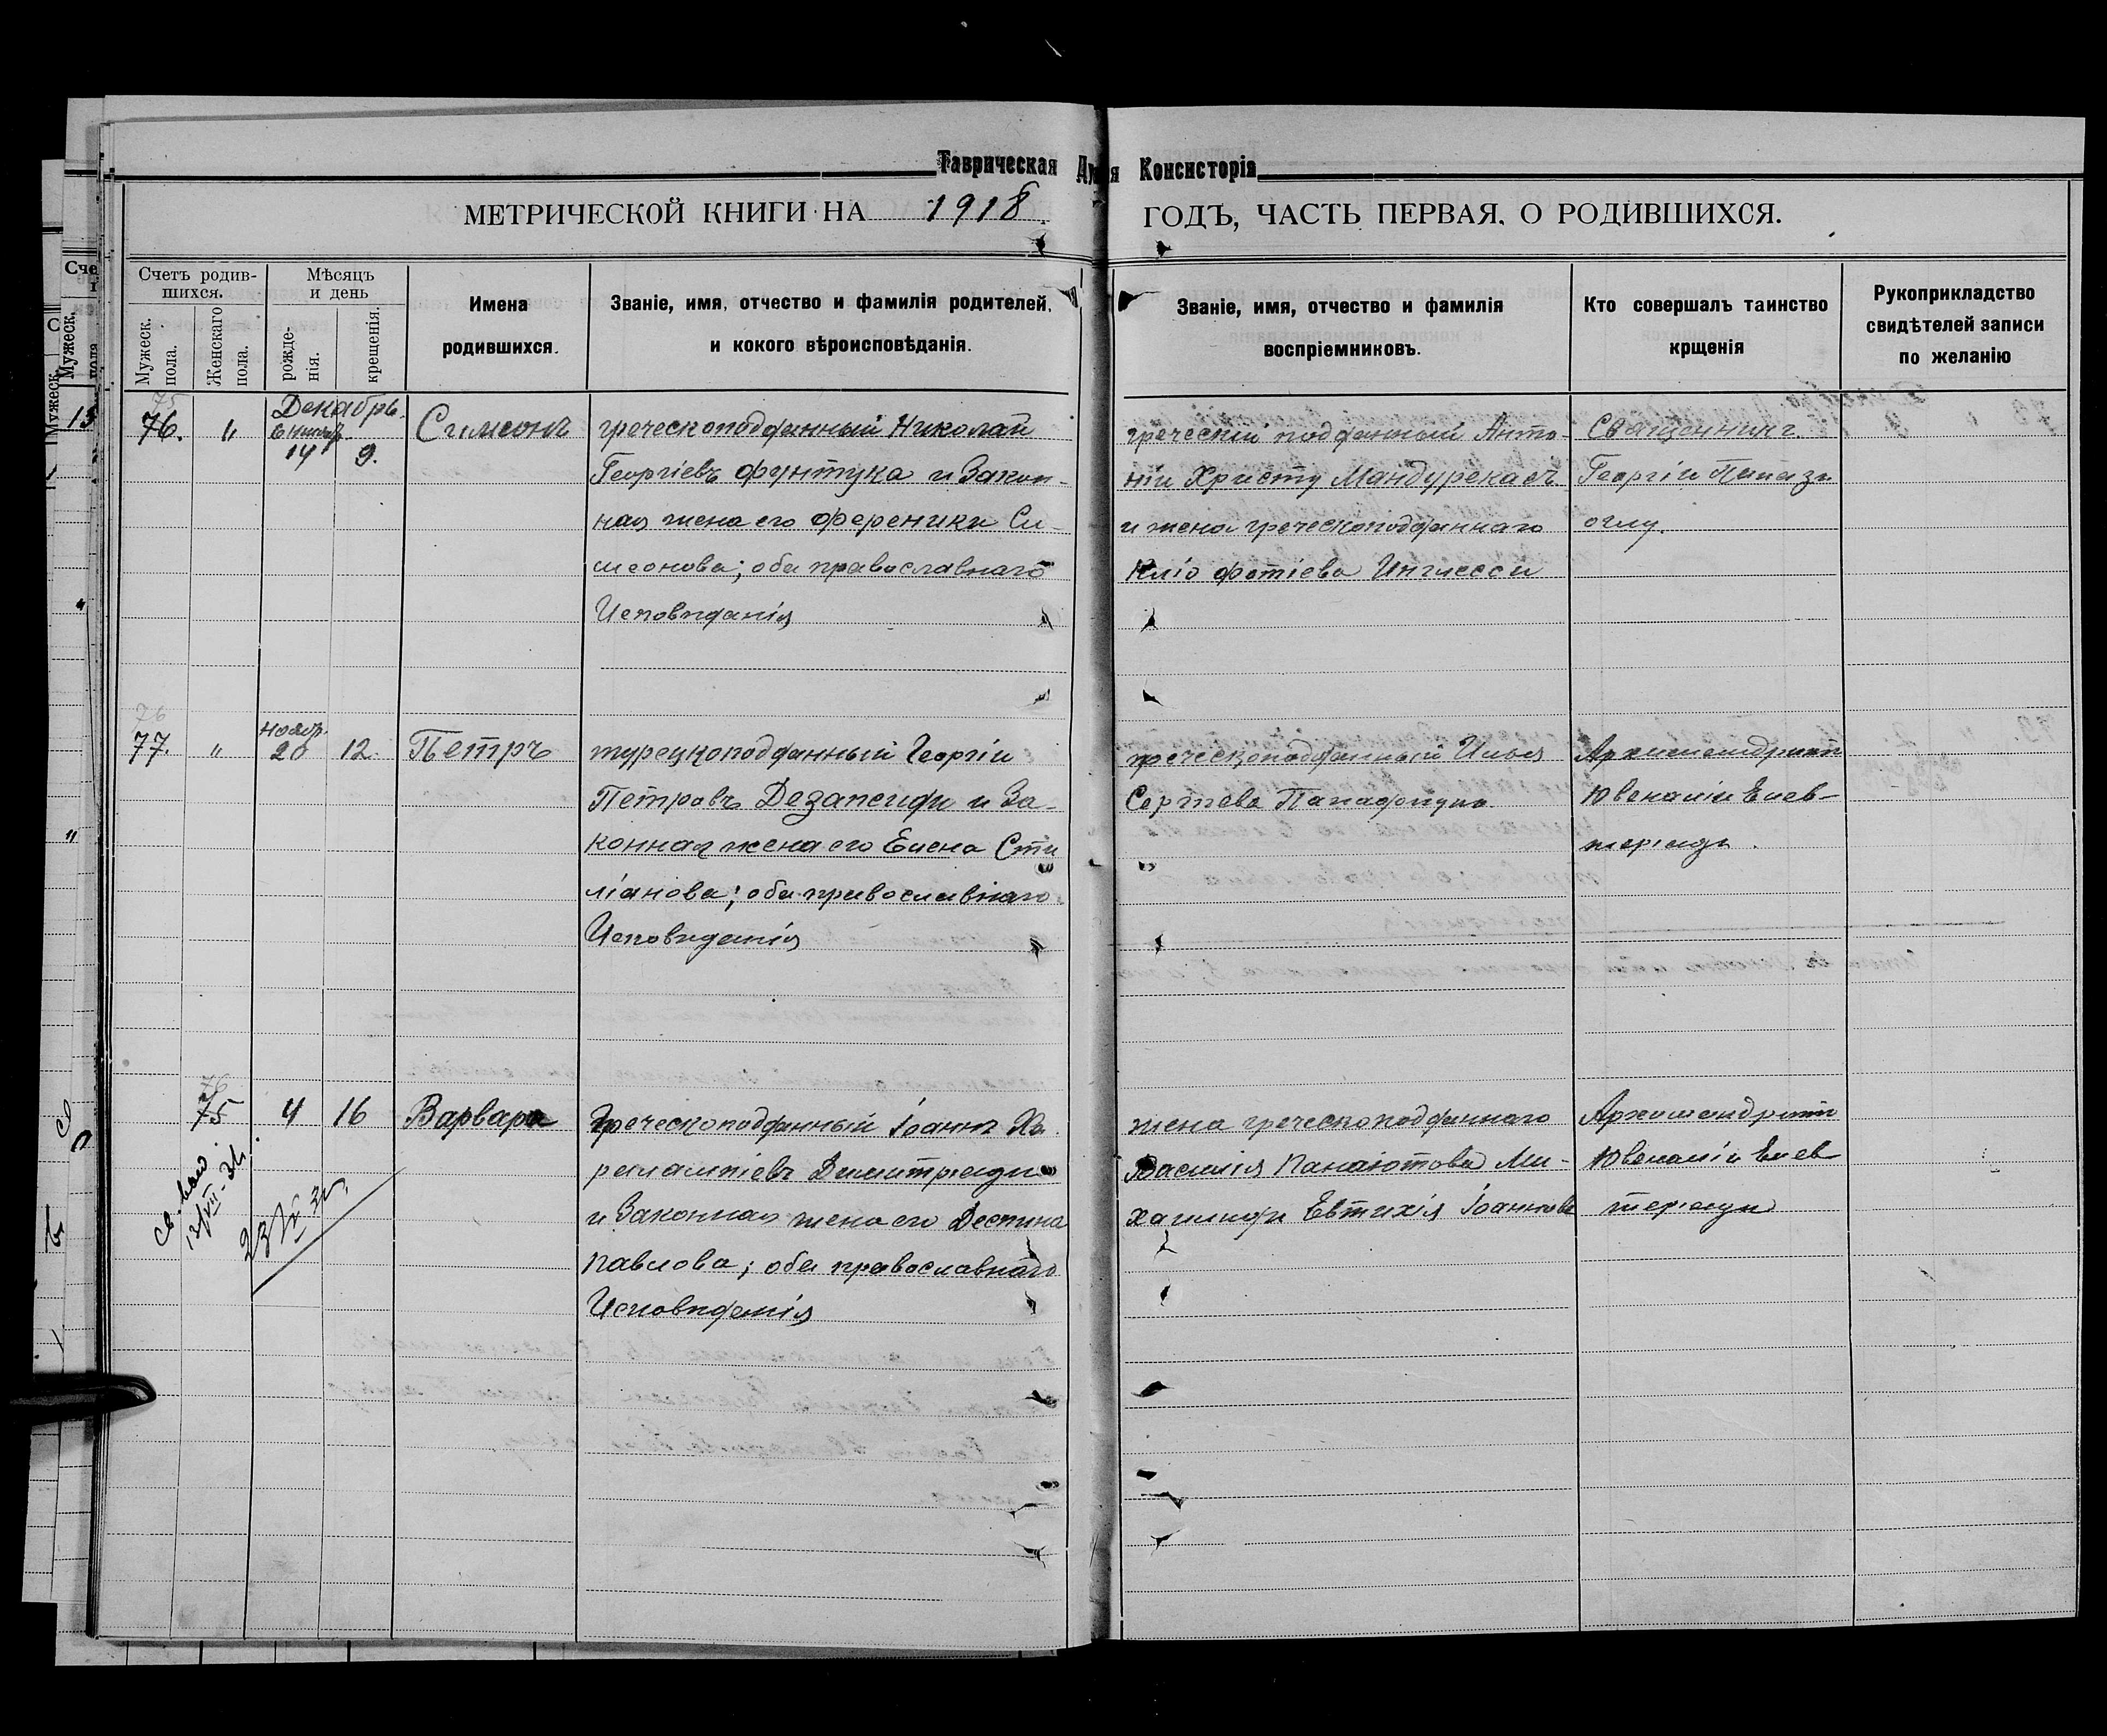 Таврическая Ду я Консисторія
МЕТРИЧЕСКОЙ КНИГИ НА 1918
ГОДЪ, ЧАСТЬ ПЕРВАЯ, О РОДИВШИХСЯ.
Счетъ родив-
шихся.
Мѣсяцъ
и день
Мужеск.
пола.
Женскаго
пола.
рожде-
нія.
крещенія.
Имена
родившихся.
Званіе, имя, отчество и фамилія родителей,
и кокого вѣроисповѣданія.
Званіе, имя, отчество и фамилія
воспріемниковъ.
Кто совершалъ таинство
крщенія
Рукоприкладство
свидѣтелей записи
по желанію
75
76. "
Декабрь.
14 9.
Симеонъ
греческоподданный Николай
Георгіевъ Фунтука и Закон-
ная жена его Ференики Си-
меонова; оба православнаго
Исповѣданія
греческій подданный Анто-
ній Христу Мандурекасъ
и жена греческоподданнаго
Кліо Фотіева Инглесси
Священник
Георгій Папазъ
оглу.
76
77. "
Ноябр.
20 12.
Петръ
турецкоподданный Георгій
Петровъ Дезапсиди и За-
конная жена его Елена Сти
ліанова; оба православнаго
Исповѣданія
греческоподданный Илья
Сергіева
Архимандритъ
Ювеналій Елев-
теріадъ.
76
75 4 16
Варвара
Греческоподданный Іоаннъ Ха
рлампіевъ Димитріади
и Законная жена его Деспина
Павлова; оба православнаго
Исповѣданія
жена греческоподданнаго
Василія Панаіотова Ми-
хаилиди Евтихія Іоаннова
Архимандритъ
Ювеналій Елев
теріади
13/VIII-31.